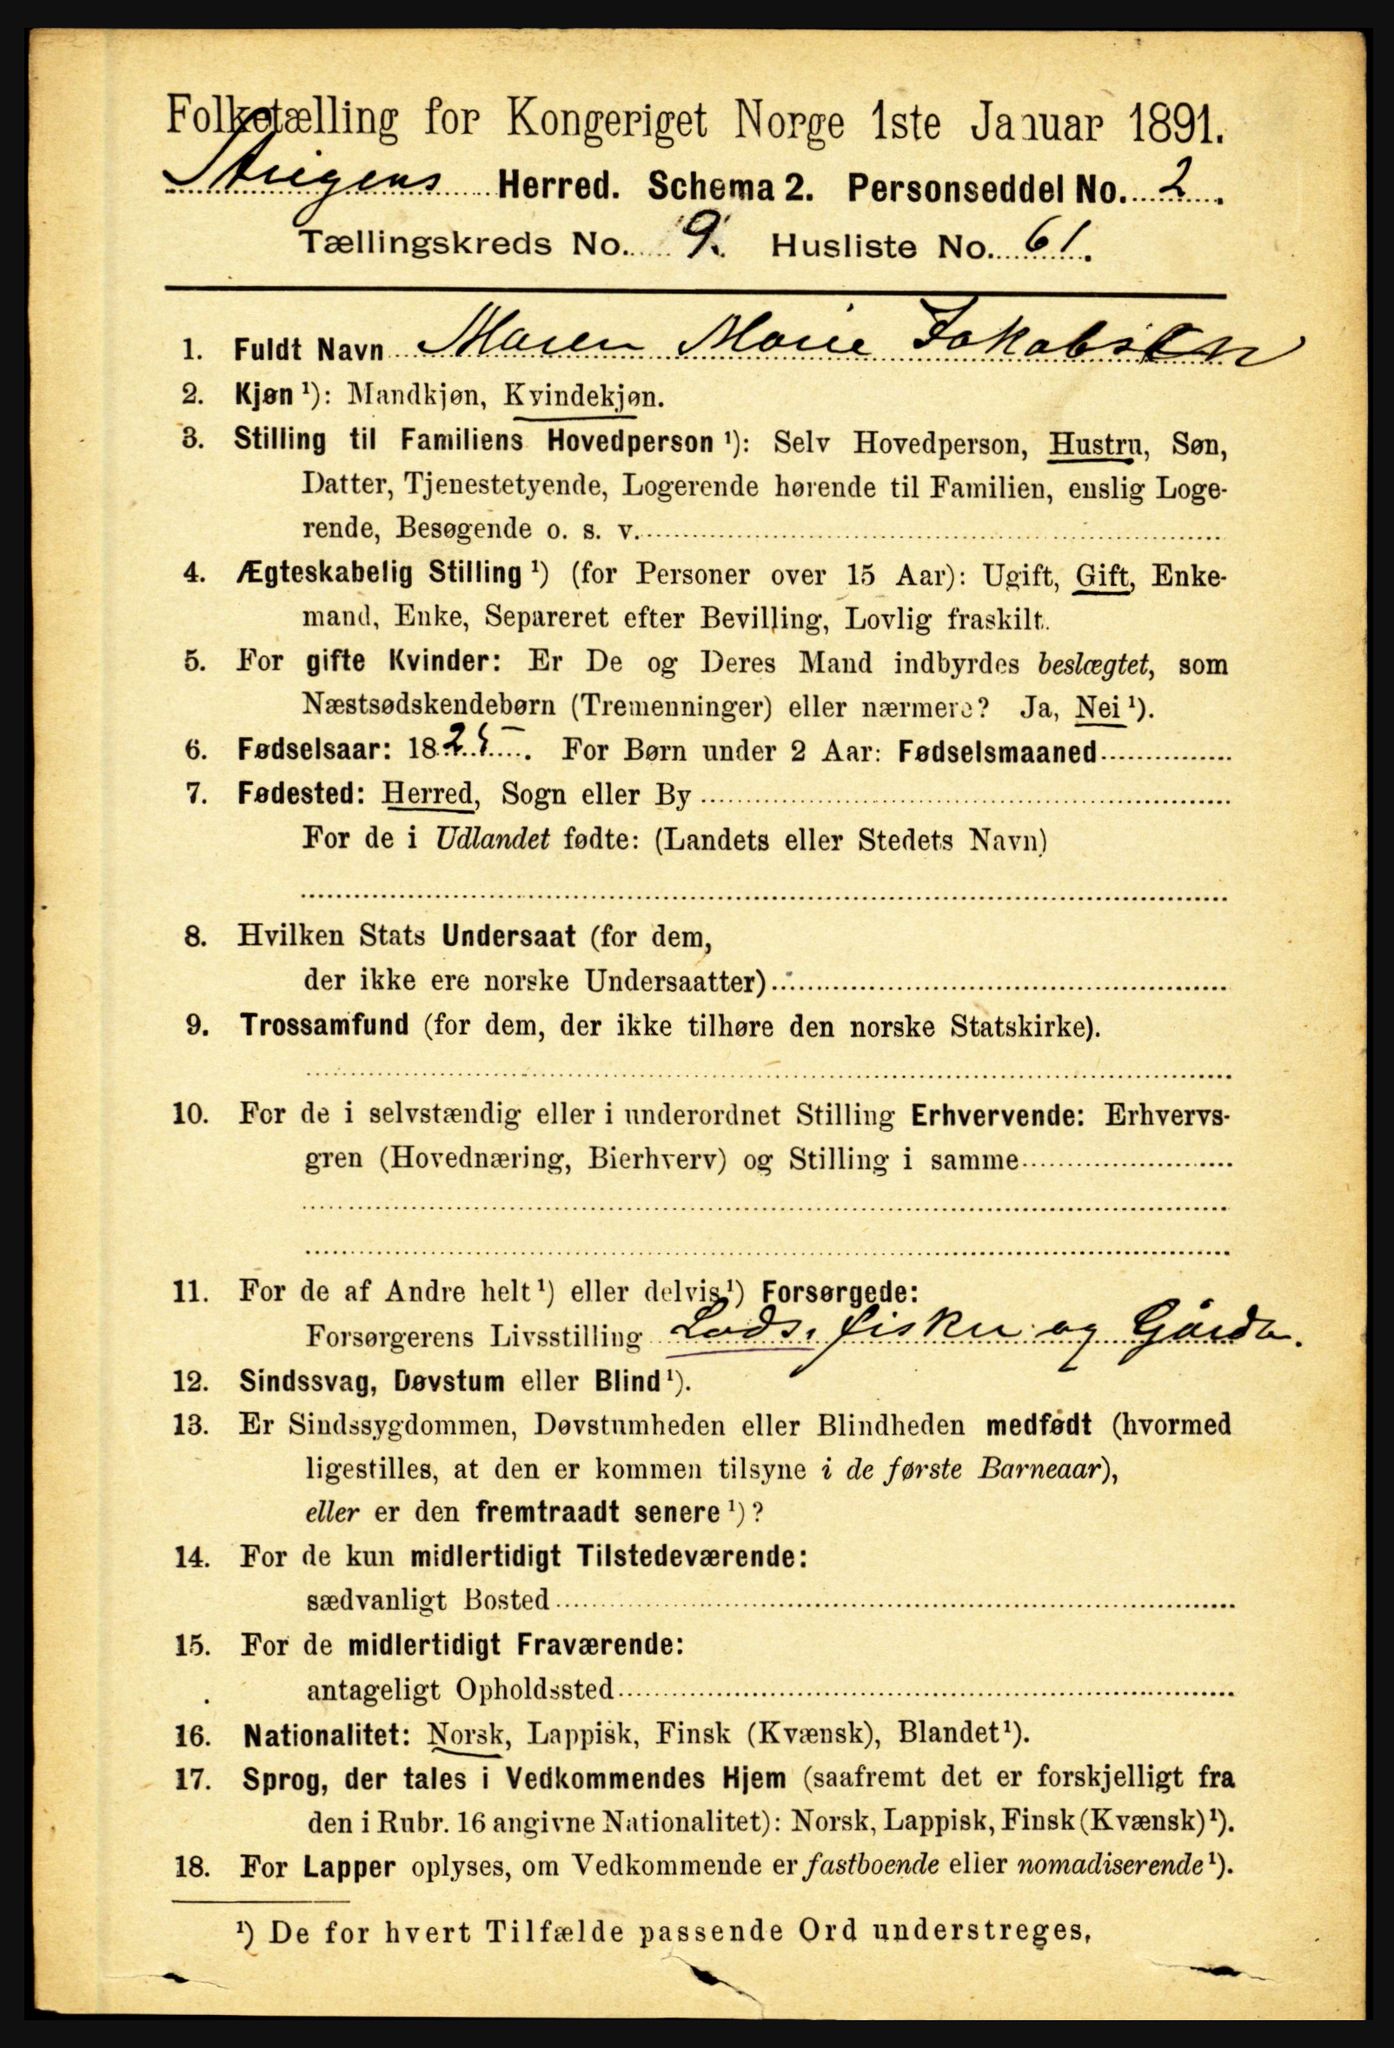 Folketælling for Kongeriget Norge 1ste Januar 1891.
Steigens Herred. Schema 2. Personseddel No. 2.
Tællingskreds No. 9. Husliste No. 61.
1. Fuldt Navn Maren Marie Jakobsen
2. Kjøn ¹): Mandkjøn, Kvindekjøn.
3. Stilling til Familiens Hovedperson ¹): Selv Hovedperson, Hustru, Søn,
Datter, Tjenestetyende, Logerende hørende til Familien, enslig Loge-
rende, Besøgende o. s. v.
4. Ægteskabelig Stilling ¹) (for Personer over 15 Aar): Ugift, Gift, Enke-
mand, Enke, Separeret efter Bevilling, Lovlig fraskilt.
5. For gifte Kvinder: Er De og Deres Mand indbyrdes beslægtet, som
Næstsødskendebørn (Tremenninger) eller nærmere? Ja, Nei ¹).
6. Fødselsaar: 1825. For Børn under 2 Aar: Fødselsmaaned
7. Fødested: Herred, Sogn eller By
For de i Udlandet fødte: (Landets eller Stedets Navn)
8. Hvilken Stats Undersaat (for dem,
der ikke ere norske Undersaatter)
9. Trossamfund (for dem, der ikke tilhøre den norske Statskirke).
10. For de i selvstændig eller i underordnet Stilling Erhvervende: Erhvervs-
gren (Hovednæring, Bierhverv) og Stilling i samme
11. For de af Andre helt ¹) eller delvis ¹) Forsørgede:
Forsørgerens Livsstilling Lods, fisker og Gårdb.
12. Sindssvag, Døvstum eller Blind ¹).
13. Er Sindssygdommen, Døvstumheden eller Blindheden medfødt (hvormed
ligestilles, at den er kommen tilsyne i de første Barneaar),
eller er den fremtraadt senere ¹)?
14. For de kun midlertidigt Tilstedeværende:
sædvanligt Bosted
15. For de midlertidigt Fraværende:
antageligt Opholdssted
16. Nationalitet: Norsk, Lappisk, Finsk (Kvænsk), Blandet ¹).
17. Sprog, der tales i Vedkommendes Hjem (saafremt det er forskjelligt fra
den i Rubr. 16 angivne Nationalitet): Norsk, Lappisk, Finsk (Kvænsk) ¹).
18. For Lapper oplyses, om Vedkommende er fastboende eller nomadiserende ¹).
¹) De for hvert Tilfælde passende Ord understreges.